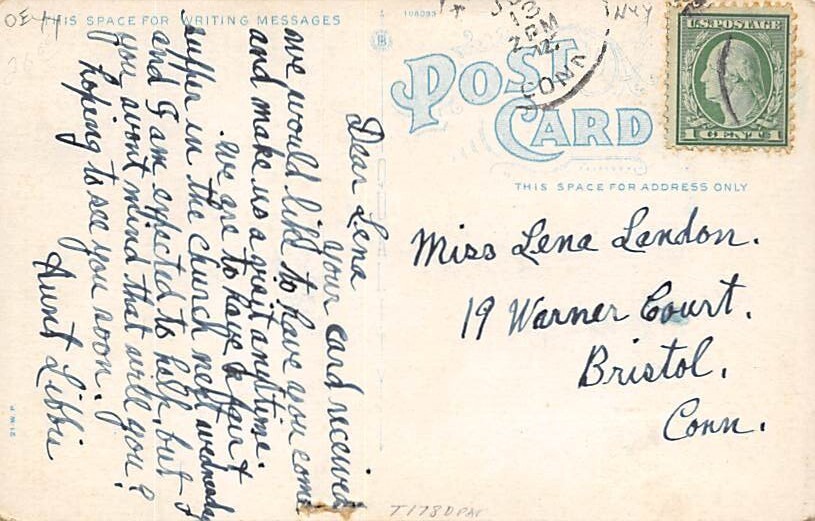 THIS SPACE FOR WRITING MESSAGES
108099
13
2 PM
CONN
U.S. POSTAGE
1 CENT 1
POST
CARD
THIS SPACE FOR ADDRESS ONLY
Dear Lena
your card received
we would like to have you come
and make us a visit anytime.
we are to have a fair &
supper in the church next wednesday
and I am expected to help, but
you wont mind that will you?
hoping to see you soon.
Aunt Libbie
Miss Lena Landon.
19 Warner Court.
Bristol,
Conn.